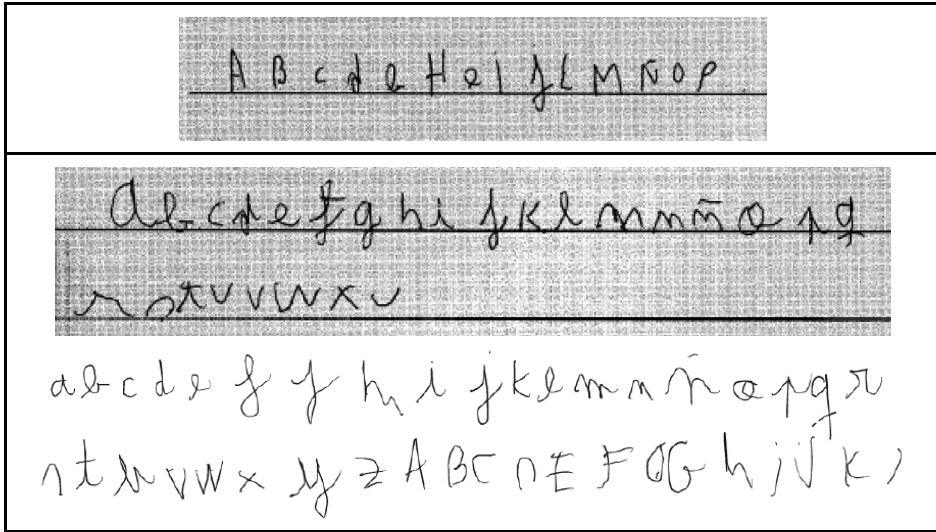 A B c d e H e i f L M N O P
a b c d e f g h i j k l m n ñ o p q
r s t u v w x u
a b c d e f f h i j k l m n ñ o p q r
s t u v w x y z A B C D E F G h i j K